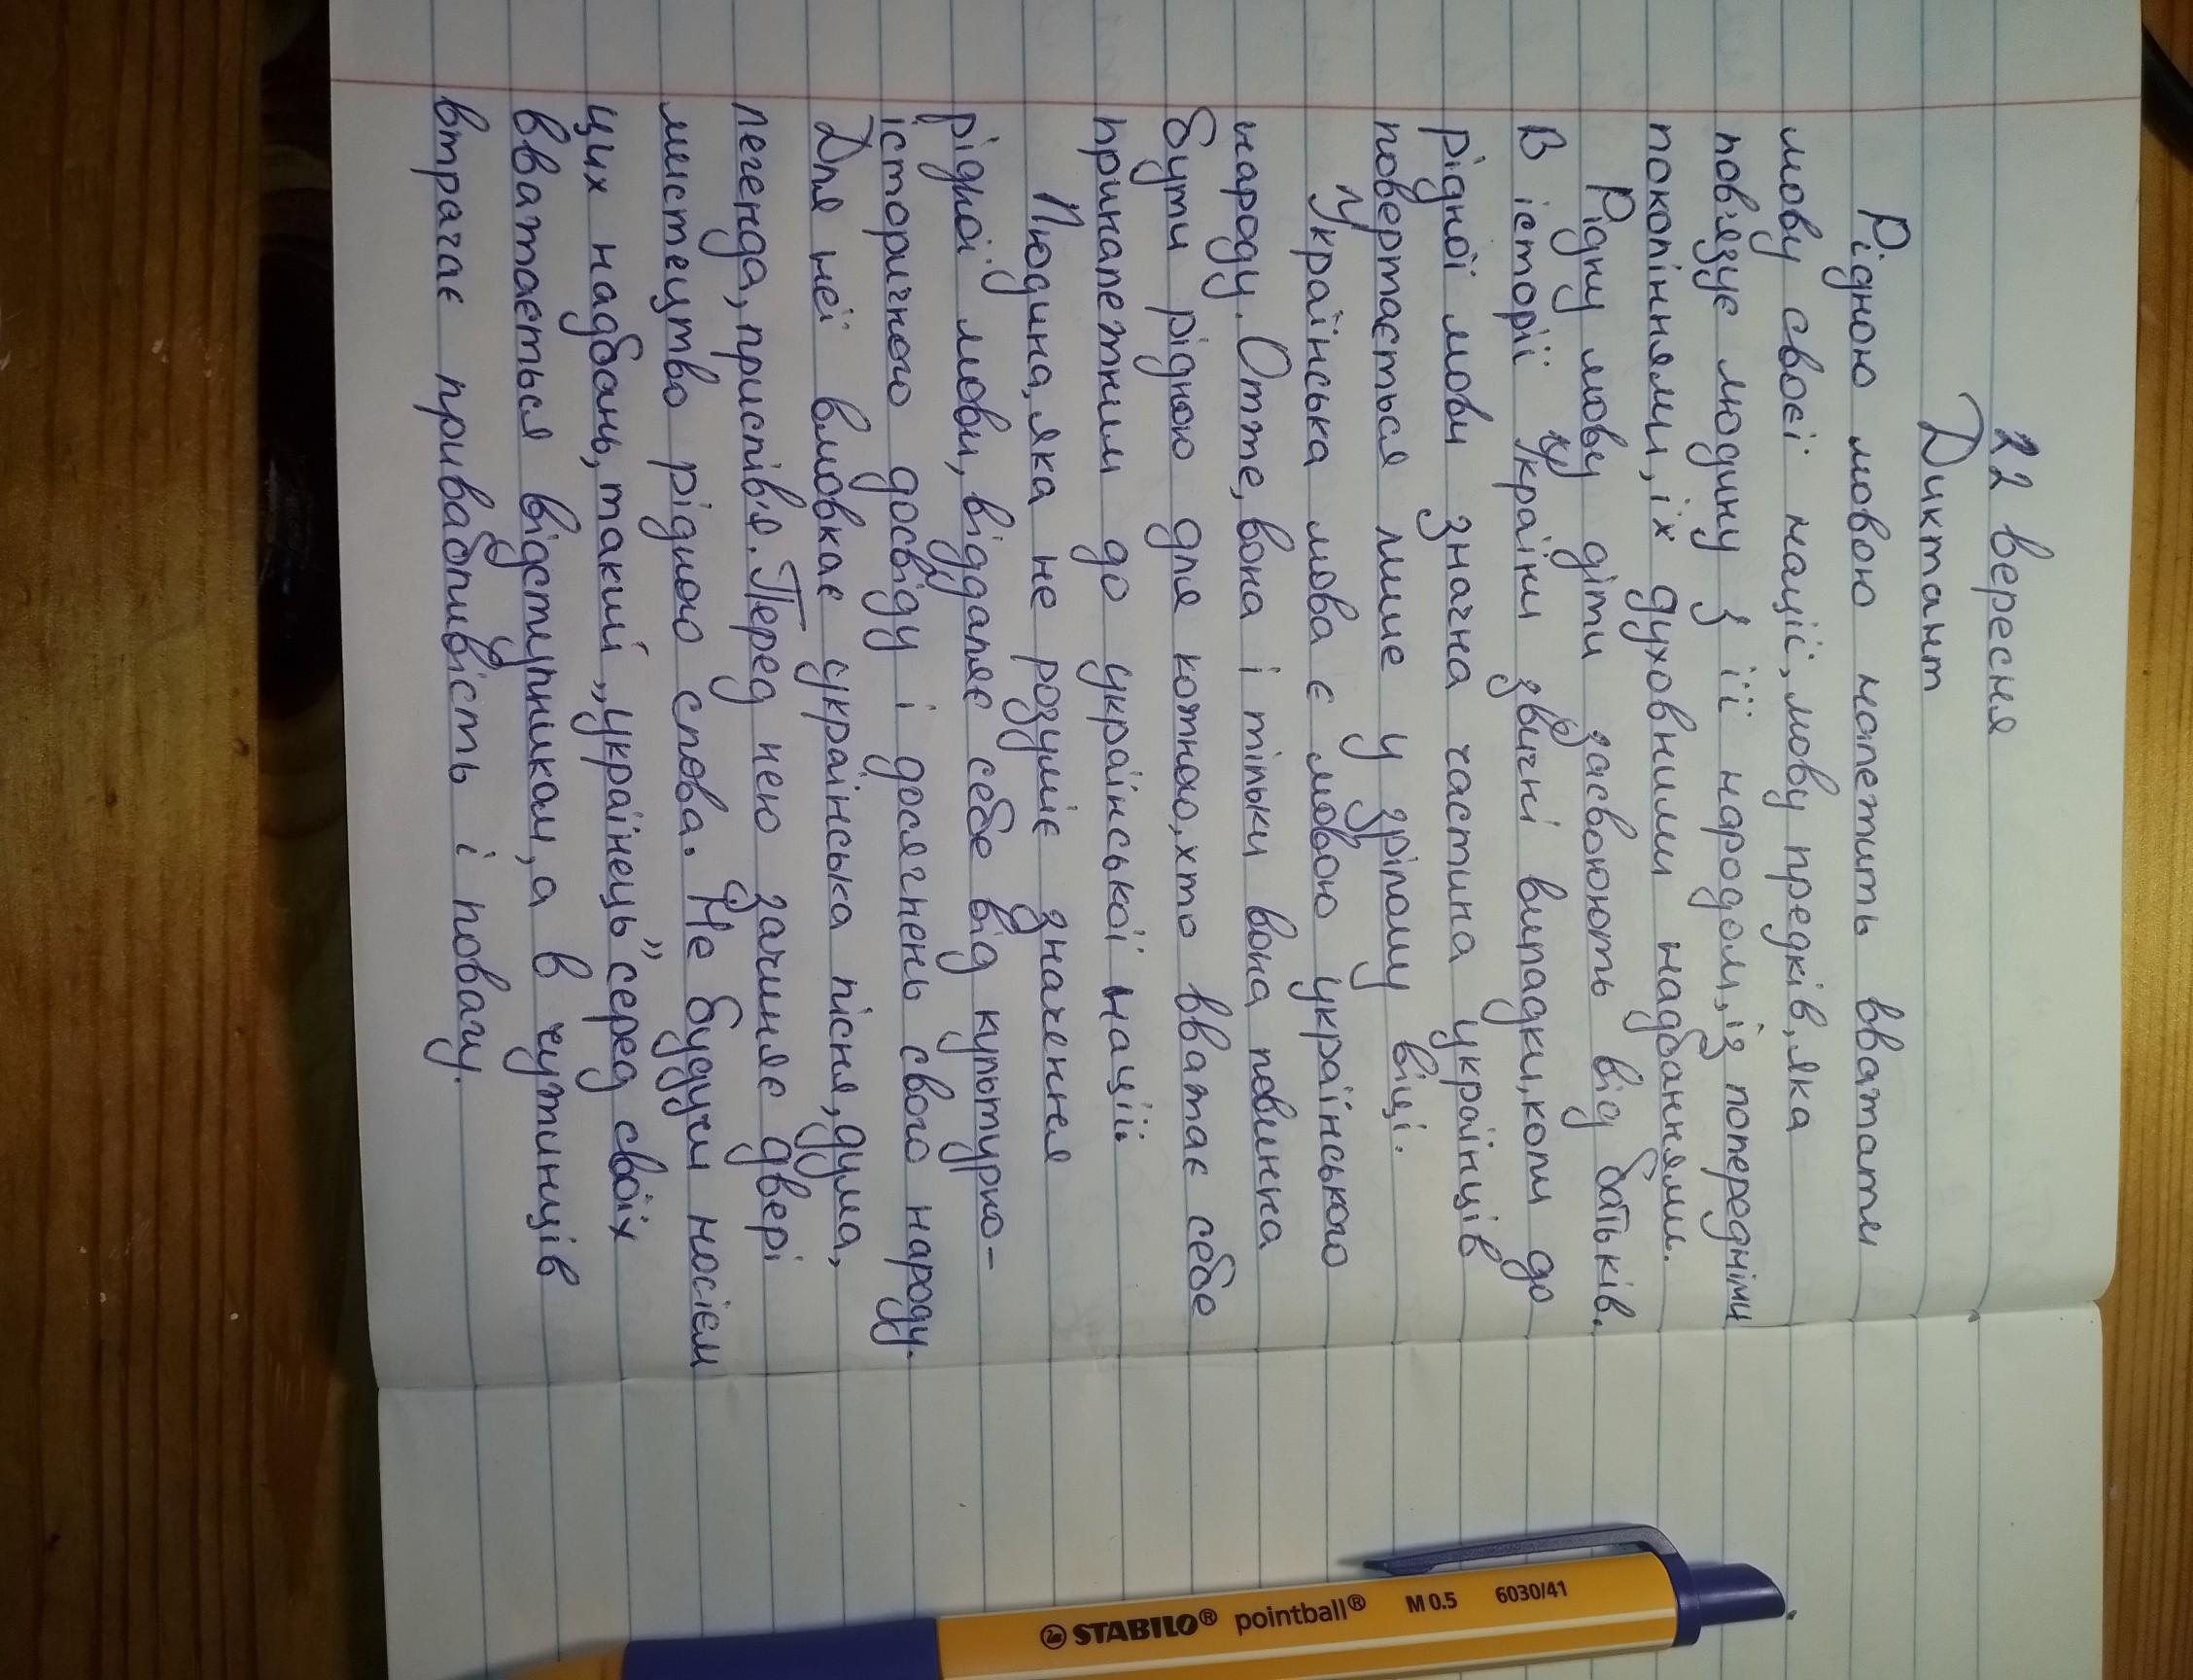 22 вересня
Диктант
Рідною мовою належить вважати
мову своєї нації, мову предків, яка
пов'язує людину з її народом, із попередніми
поколіннями, їх духовними надбаннями.
Рідну мову діти засвоюють від батьків.
В історії України звичні випадки, коли до
рідної мови значна частина українців
повертається лише у зрілому віці.
Українська мова є мовою українського
народу. Отже, вона і тільки вона повинна
бути рідною для кожного, хто вважає себе
приналежним до української нації.
Людина, яка не розуміє значення
рідної мови, віддаляє себе від культурно-
історичного досвіду і досягнень свого народу.
Для неї вмовкає українська пісня, дума,
легенда, прислів'я. Перед нею зачиняє двері
мистецтво рідного слова. Не будучи носієм
цих надбань, такий „українець” серед своїх
вважається відступником, а в чужинців
втрачає привабливість і повагу.
STABILO® pointball® M 0.5 6030/41